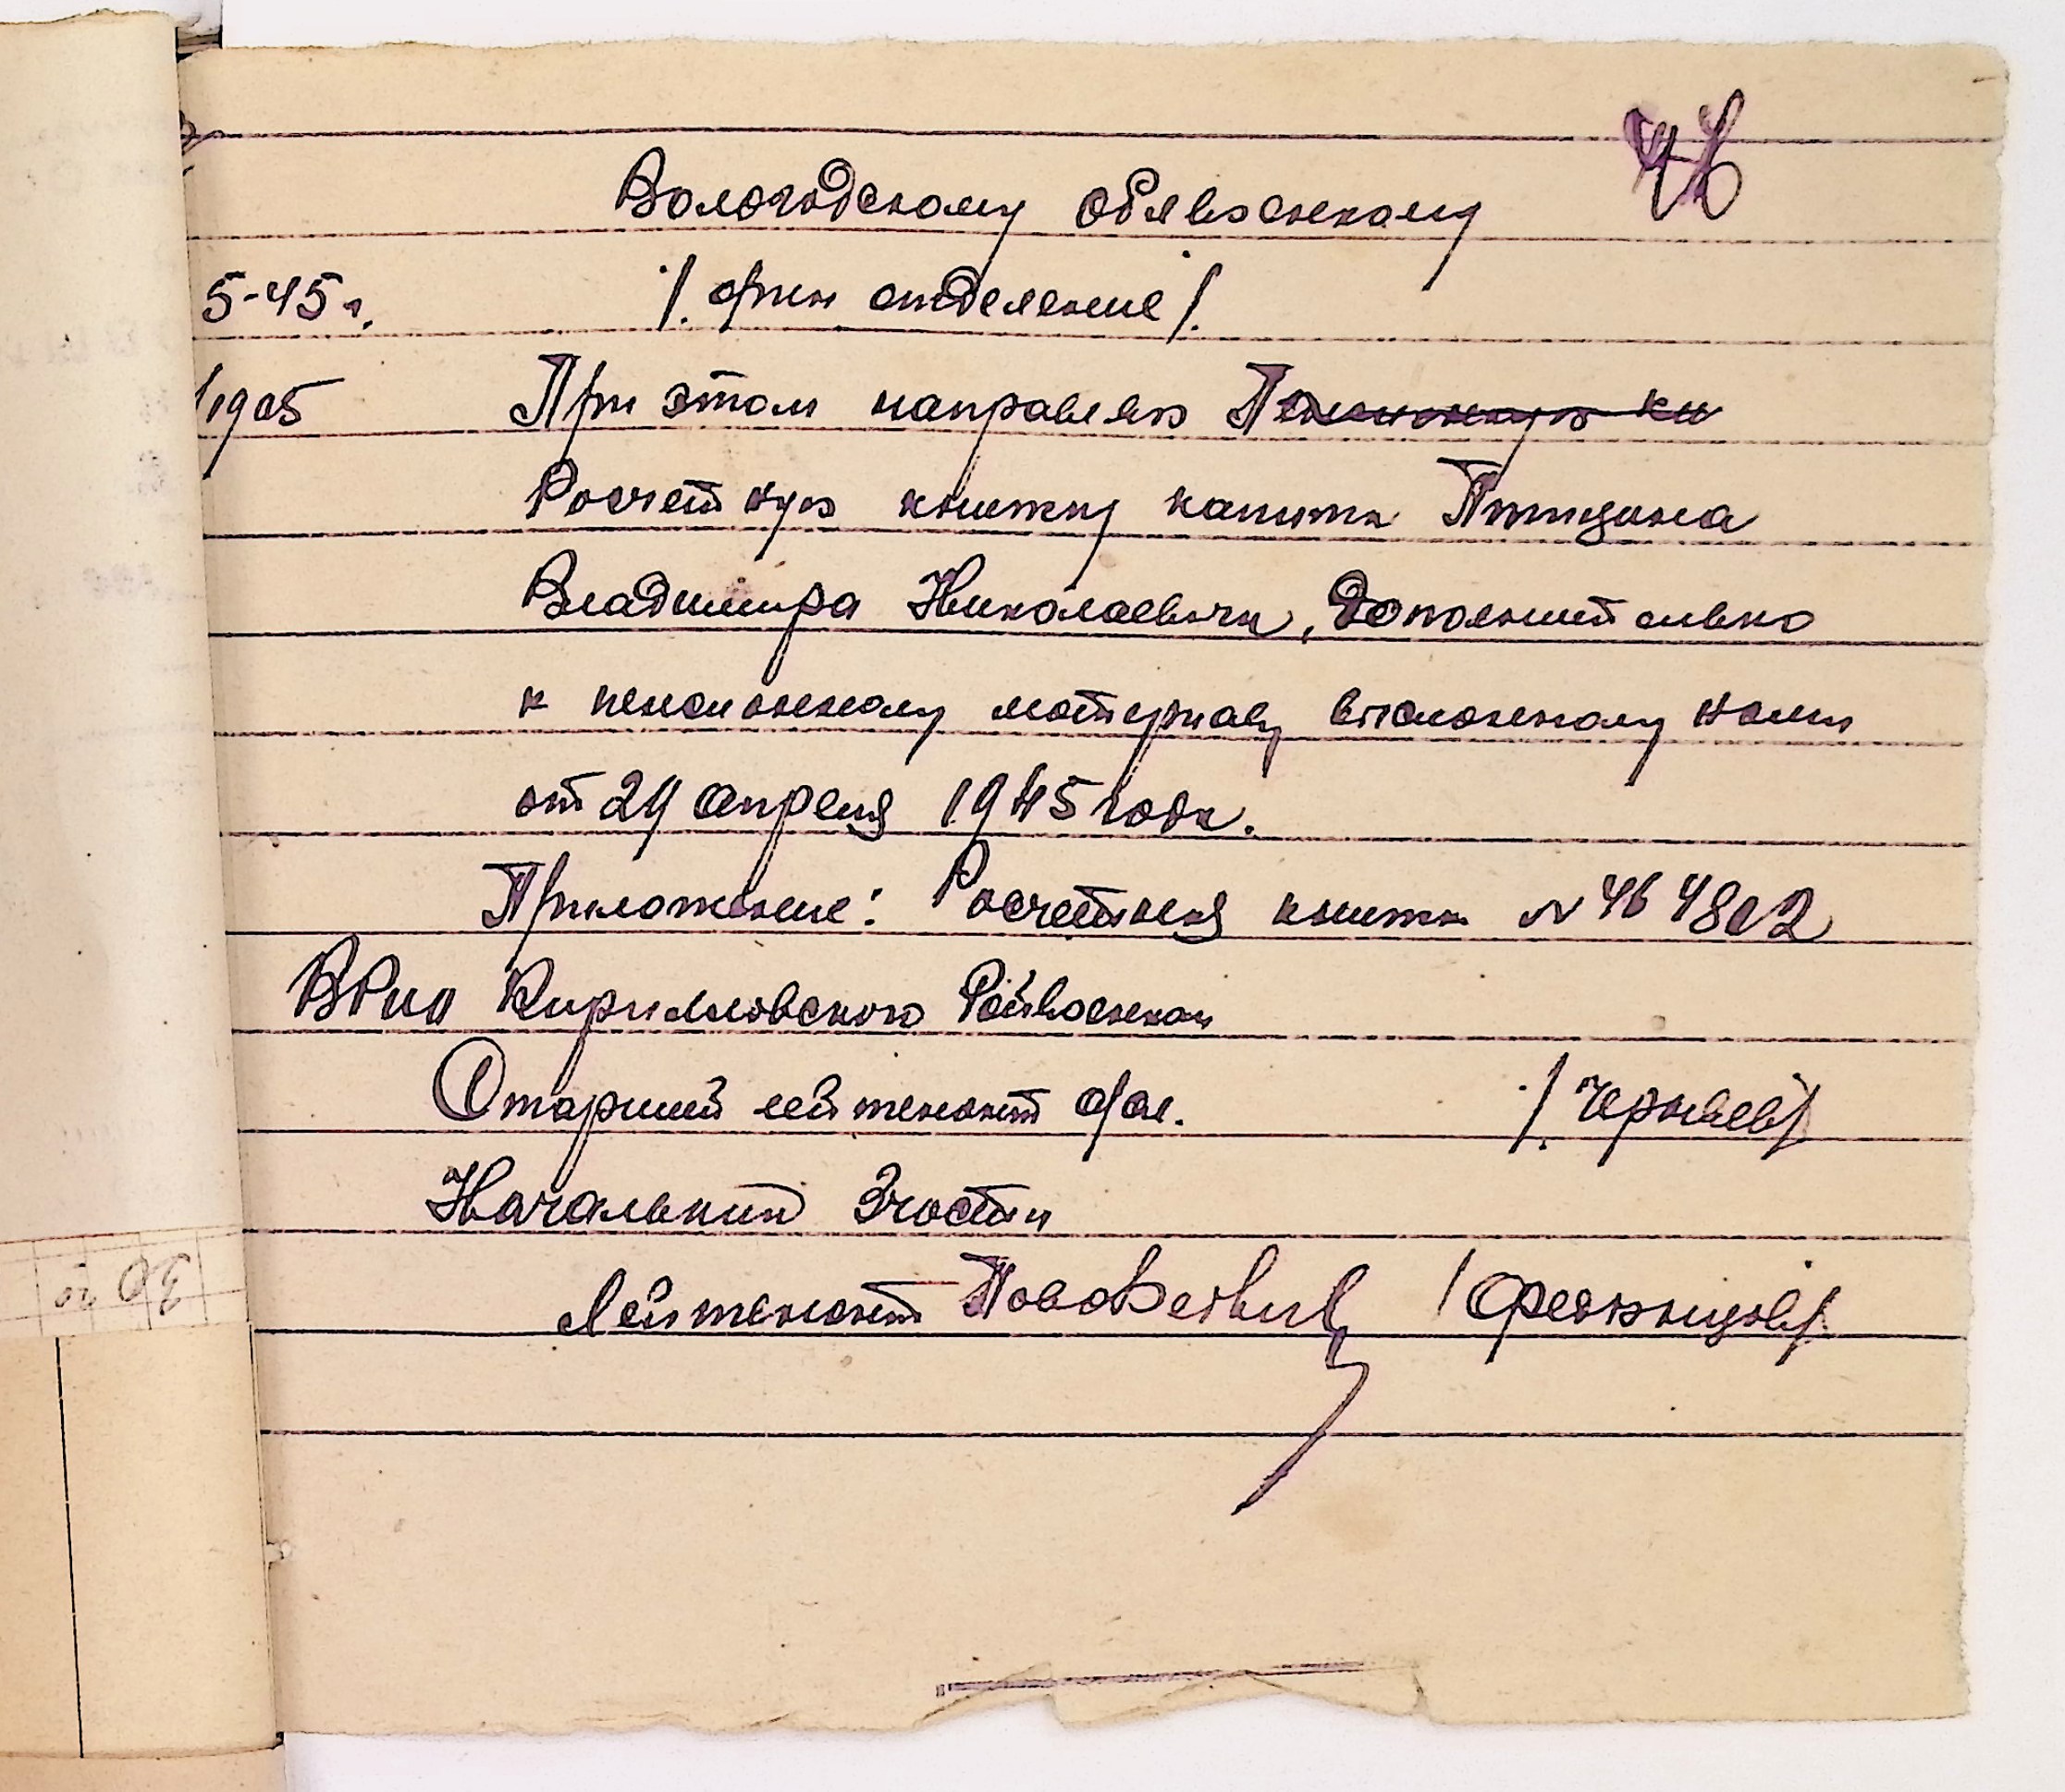 46
Вологодскому облвоенкому
5-45 г.
/. фин отделение /.
/1905
При этом направляю Пенсионную кн
Росчетную книжку капитна Птицина
Владимира Николаевича, Дополнительно
к пенсионному материалу высланому нами
от 24 апреля 1945 года.
Приложение: Росчетная книжка № 464802
ВРио Кирилловского Райвоенком
Старший лейтенант а/сл.
/. Чернаев /
Начальник 3 части
Лейтенант